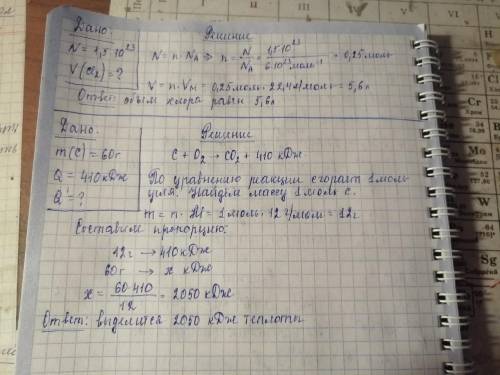 Дано:
Решение
N = 1,5·10²³
V(Cl₂) = ?
N = n·Nₐ ⇒ n = N/Nₐ = 1,5·10²³/6·10²³ моль⁻¹ = 0,25 моль
V = n·Vм = 0,25 моль · 22,4 л/моль = 5,6 л
Ответ: объём хлора равен 5,6 л
Дано:
Решение
m(C) = 60 г
Q = 410 кДж
Q' = ?
C + O₂ → CO₂ + 410 кДж
По уравнению реакции сгорает 1 моль
угля. Найдём массу 1 моль C.
m = n · M = 1 моль · 12 г/моль = 12 г
Составим пропорцию:
12 г → 410 кДж
60 г → x кДж
x = 60·410/12 = 2050 кДж
Ответ: выделится 2050 кДж теплоты
VI
Mo
W
Sg